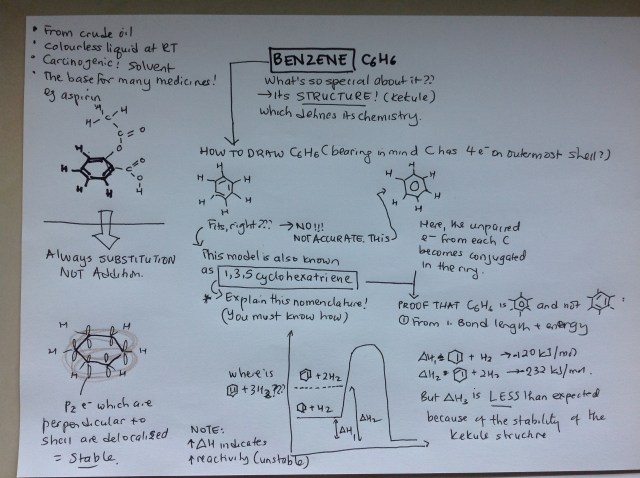 • From crude oil
• Colourless liquid at RT
• Carcinogenic! Solvent
• The base for many medicines!
eg aspirin
H
H
H
C
C
O
O
C
O
O
H
H
H
H
H
Always SUBSTITUTION
NOT Addition.
H
H
H
H
H
H
Pz e- which are
perpendicular to
shell are delocalised
= Stable.
BENZENE C6H6
What's so special about it??
→ Its STRUCTURE! (Kekule)
which defines its chemistry.
HOW TO DRAW C6H6 (bearing in mind C has 4 e- on outermost shell?)
H
H
H
H
H
H
H
H
H
H
H
H
Fits, right??? → NO!!!
NOT ACCURATE. This
Here, the unpaired
e- from each C
becomes conjugated
in the ring.
This model is also known
as 1,3,5 cyclohexatriene
* Explain this nomenclature!
(You must know how)
PROOF THAT C6H6 is and not :
① From Bond length + energy
where is
+ 3H2???
+ 2H2
+ H2
ΔH1
ΔH2
NOTE:
↑ ΔH indicates
↑ reactivity (unstable)
ΔH1 = + H2 → -120 kJ/mol
ΔH2 = + 2H2 → -232 kJ/mol.
But ΔH3 is LESS than expected
because of the stability of the
Kekule structure